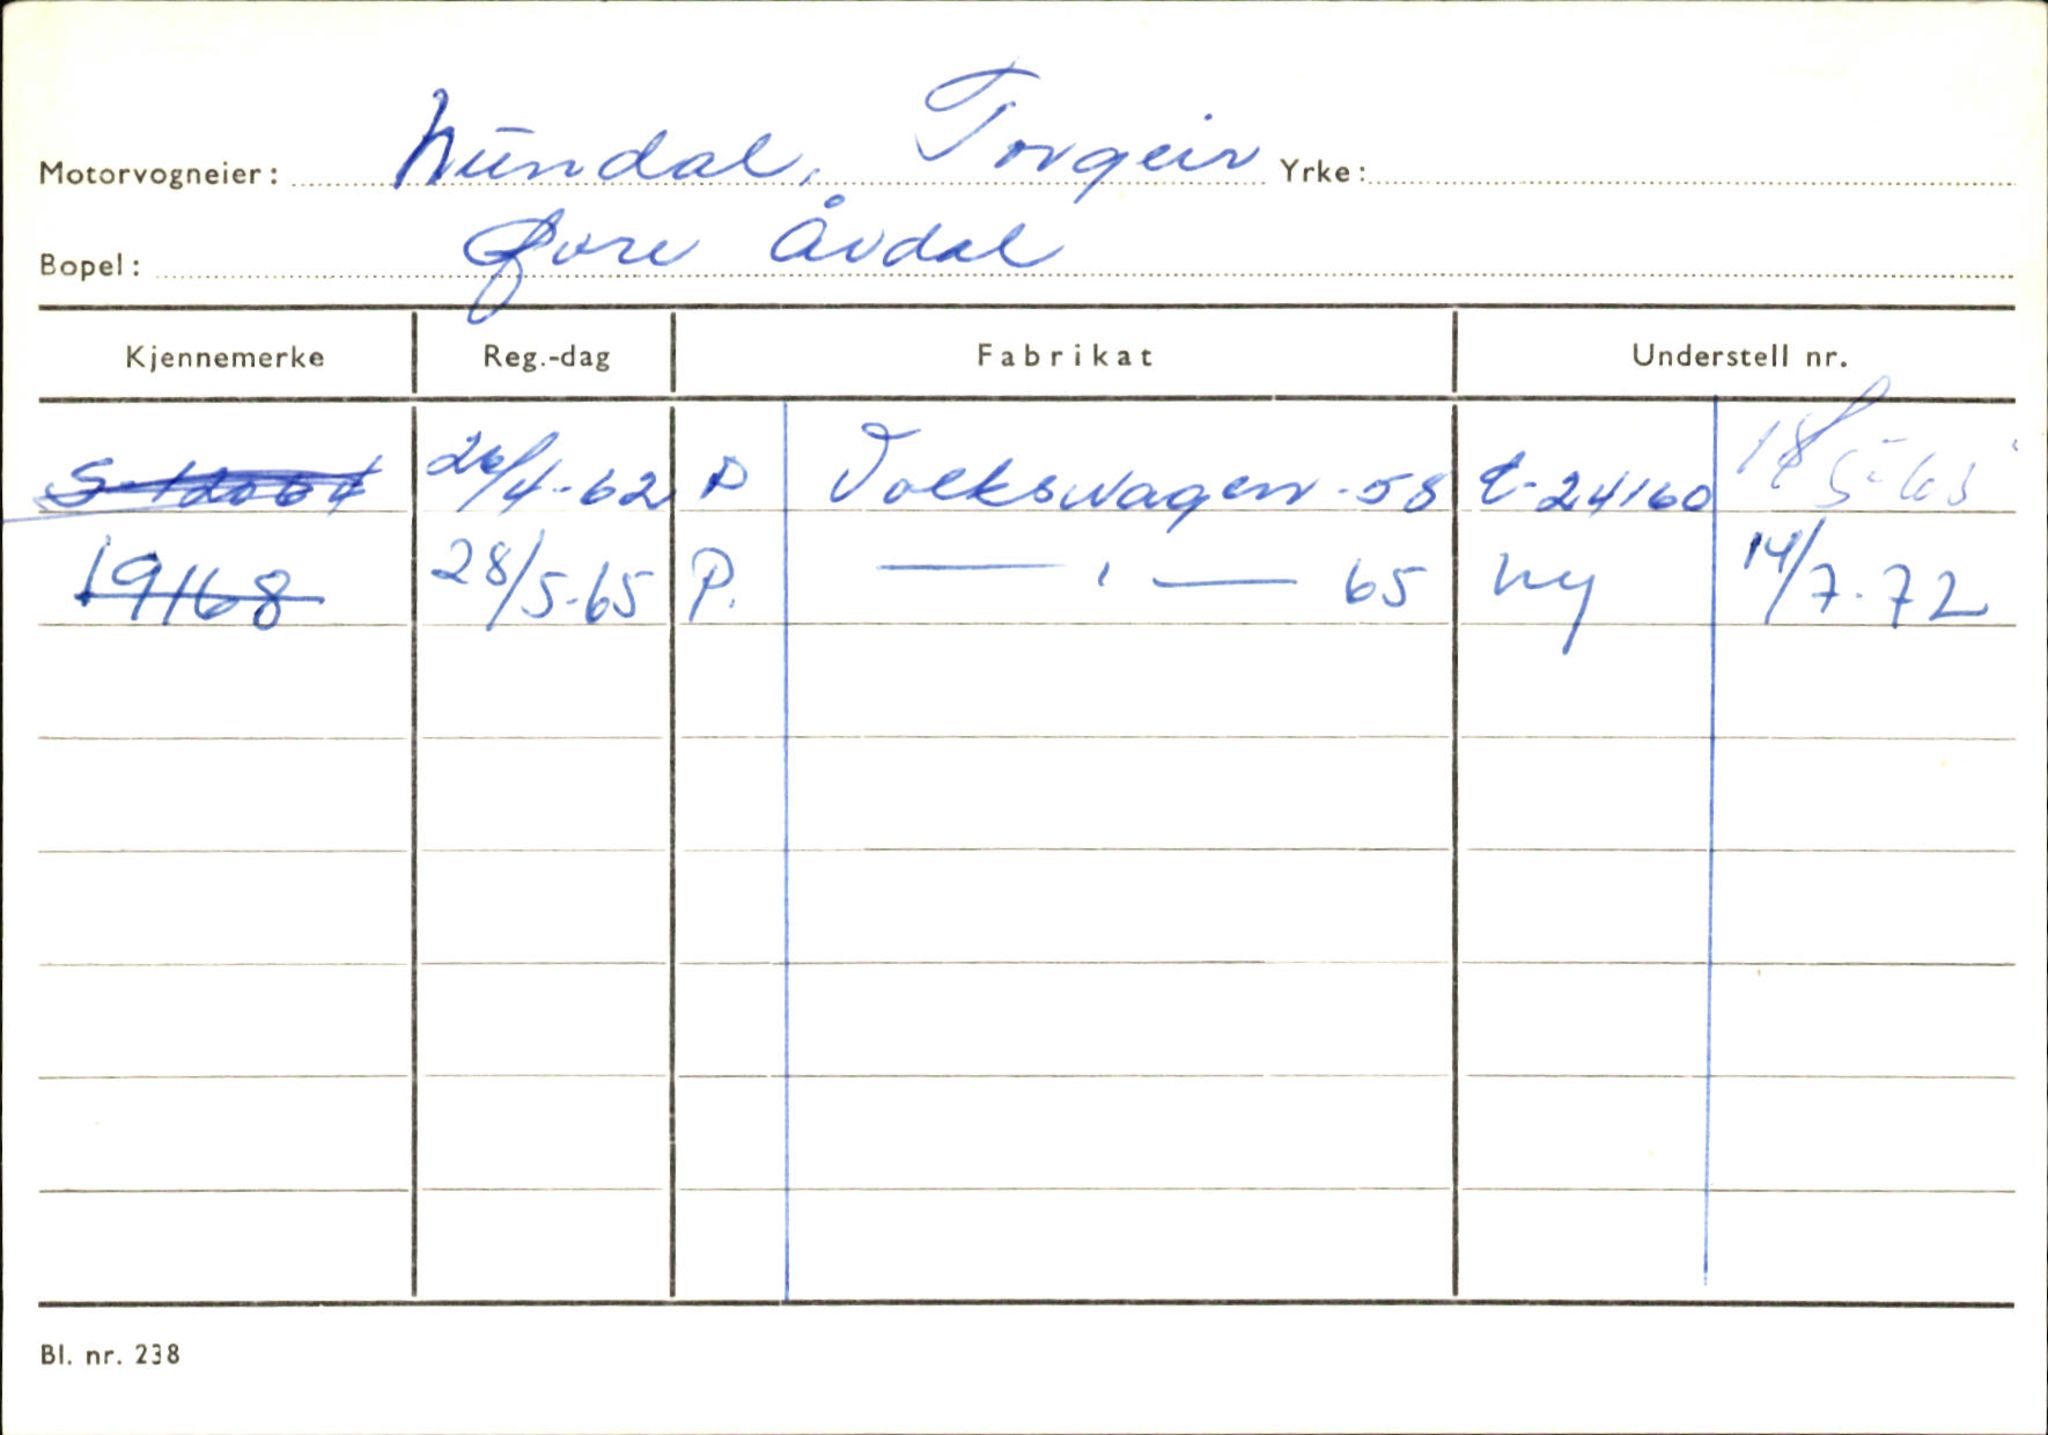 Motorvogneier: Nundal, Torgeir Yrke:
Bopel: Øvre Årdal
Kjennemerke Reg.-dag Fabrikat Understell nr.
S-12064 26/4-62 P Volkswagen -58 E-24160 18/5-65
19168 28/5-65 P. — " — 65 ny 14/7-72
Bl. nr. 238